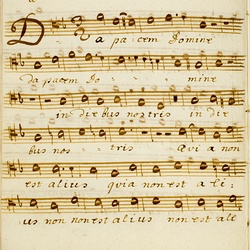 Da pacem Domine
Da pacem Do - - - mine
in diebus nostris in die
bus nos - tris Qui a non
est alius quia non est a li -
us non non est alius non est ali